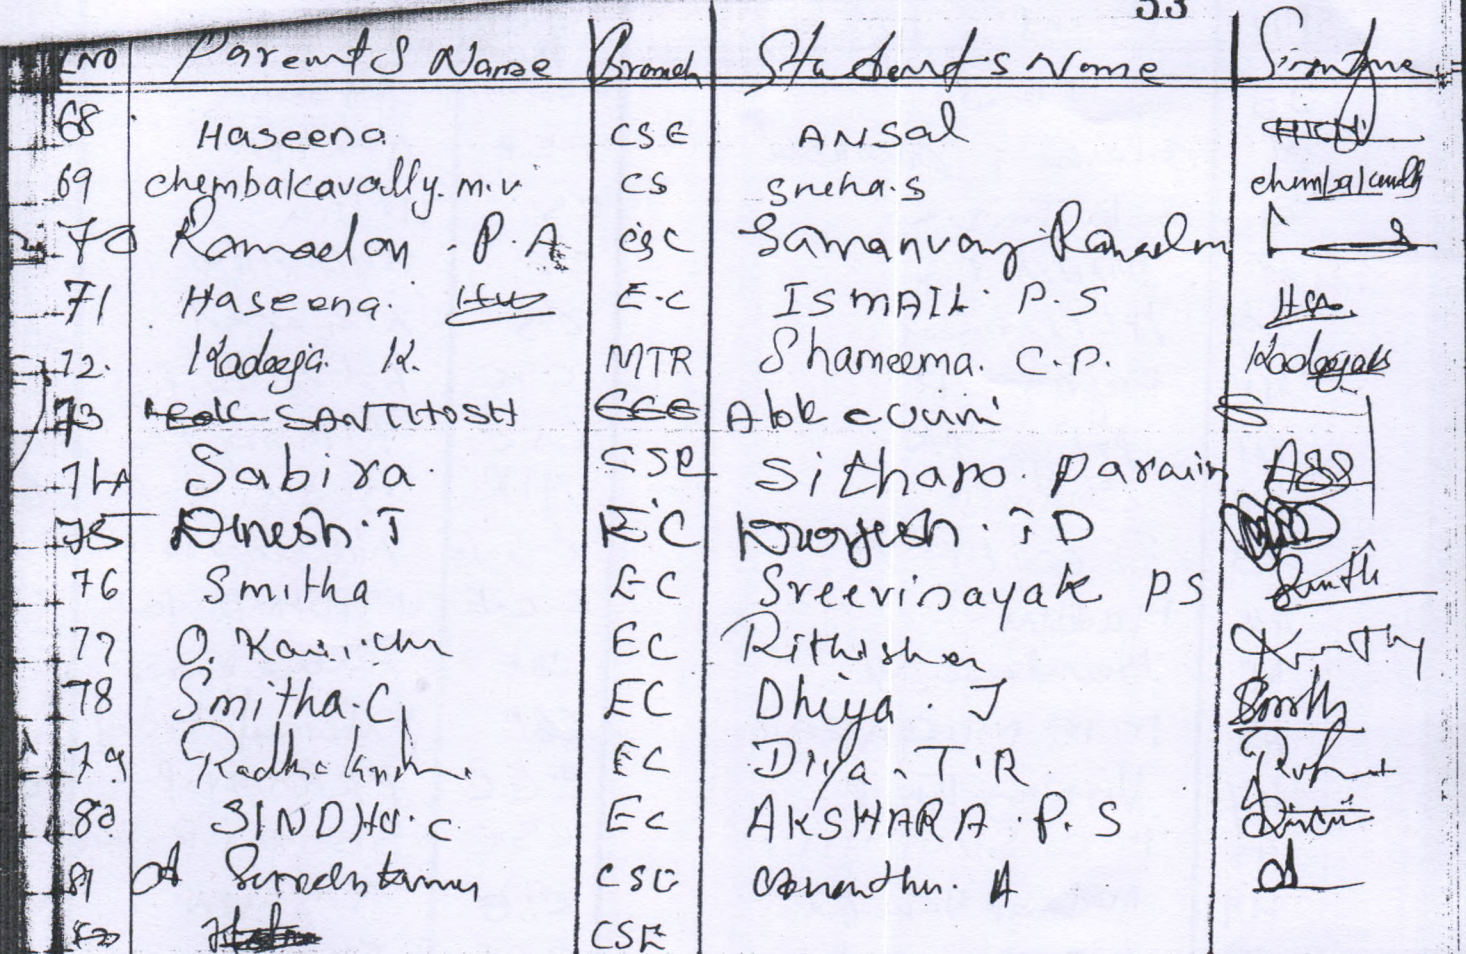 53
NO Parent's Name Branch Student's Name Signature
68 Haseena CSE ANSal
69 chembakavally.m.v. CS sneha.s chembakavally
70 Ramadan . P. A CSC Samanvay Ramadan
71 Haseena. E.C ISMAIL P.S
72. Kadeeja K. MTR Shameema. C.P. Kadeejak
73 SANTHOSH EEE
74 Sabira. CSE Sithara
75 Dinesh.T EC T D
76 Smitha EC Sreevinayak PS Smith
77 O. EC
78 Smitha.C EC Dhiya. J
79 Radhakrishn EC Diya. T.R
80 SINDHU.C EC AKSHARA.P.S
81 A CSE Ananthu. A
82 CSE